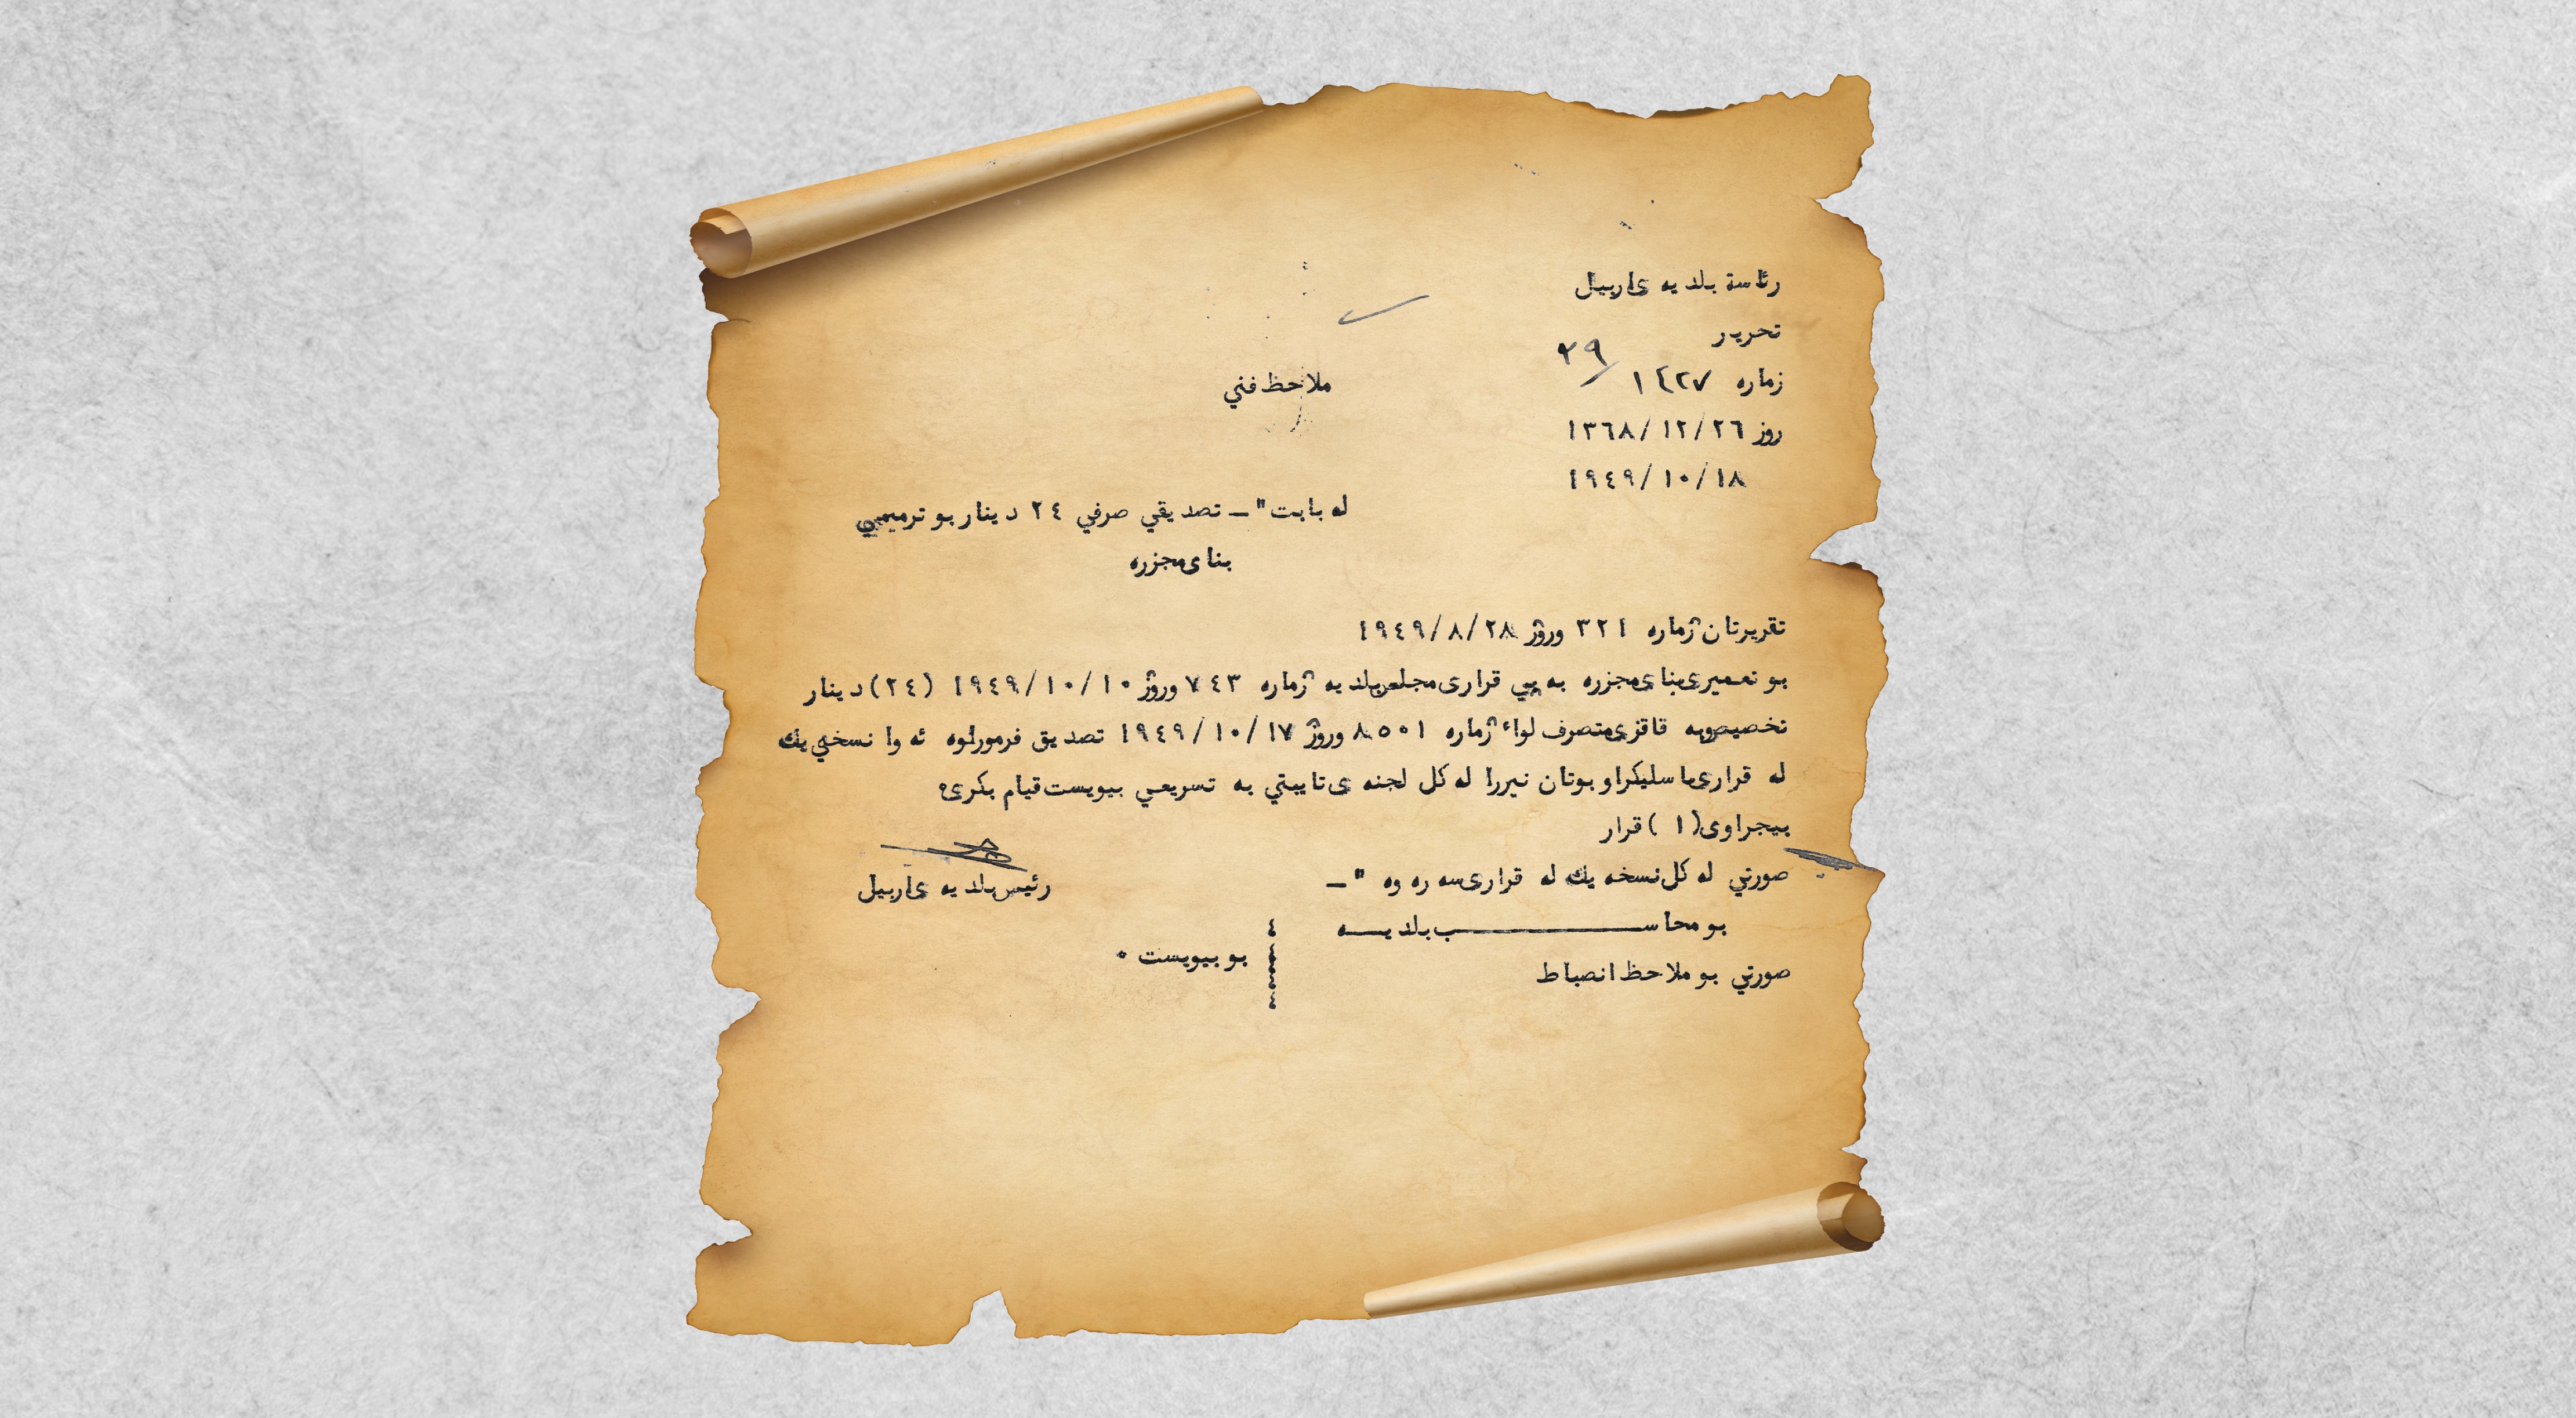 رئاسة بلديه ى اربيل
تحرير
زماره ١٤٢٧ / ٢٩
روز ١٣٦٨/١٢/٢٦
١٩٤٩/١٠/١٨
ملاحظ فني
له بابت "ـ تصديقي صرفي ٢٤ دينار بو ترميمي
بناى مجزره
تقريرتان ژماره ٣٢١ وروژ ١٩٤٩/٨/٢٨
بو تعميرى بناى مجزره به پي قرارى مجلس بلديه ژماره ٧٤٣ وروژ ١٩٤٩/١٠/١٠ (٢٤) دينار
تخصيص وبه قاقزى متصرف لواء ژماره ٨٥٠١ وروژ ١٩٤٩/١٠/١٧ تصديق فرموراوه ئه وا نسخه يك
له قرارى باسليكراو بوتان نيررا له كل لجنه ى تايبتي به تسريعي بيويست قيام بكرى٠
بيجراوى (١) قرار
صورتي له كل نسخه يك له قرارى سه ره وه "ـ
رئيس بلديه ى اربيل
بو محاسب بلديه
بو بيويست ٠
صورتي بو ملاحظ انصباط